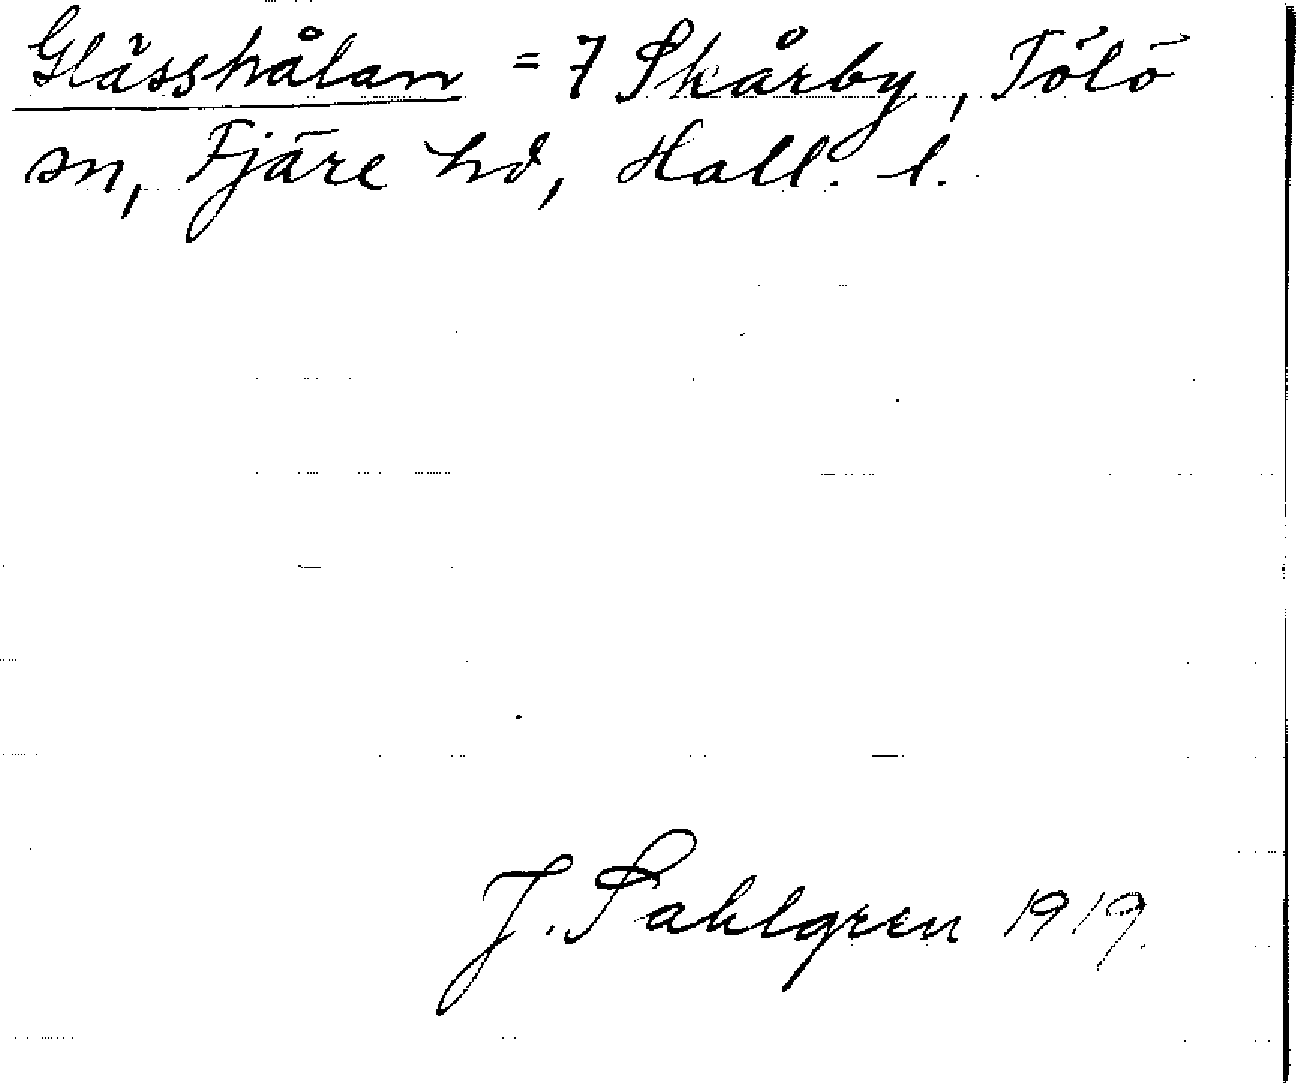 Glässhålan = 7 Skårby, Tölö
sn, Fjäre hd, Hall. l.
J. Sahlgren 1919.